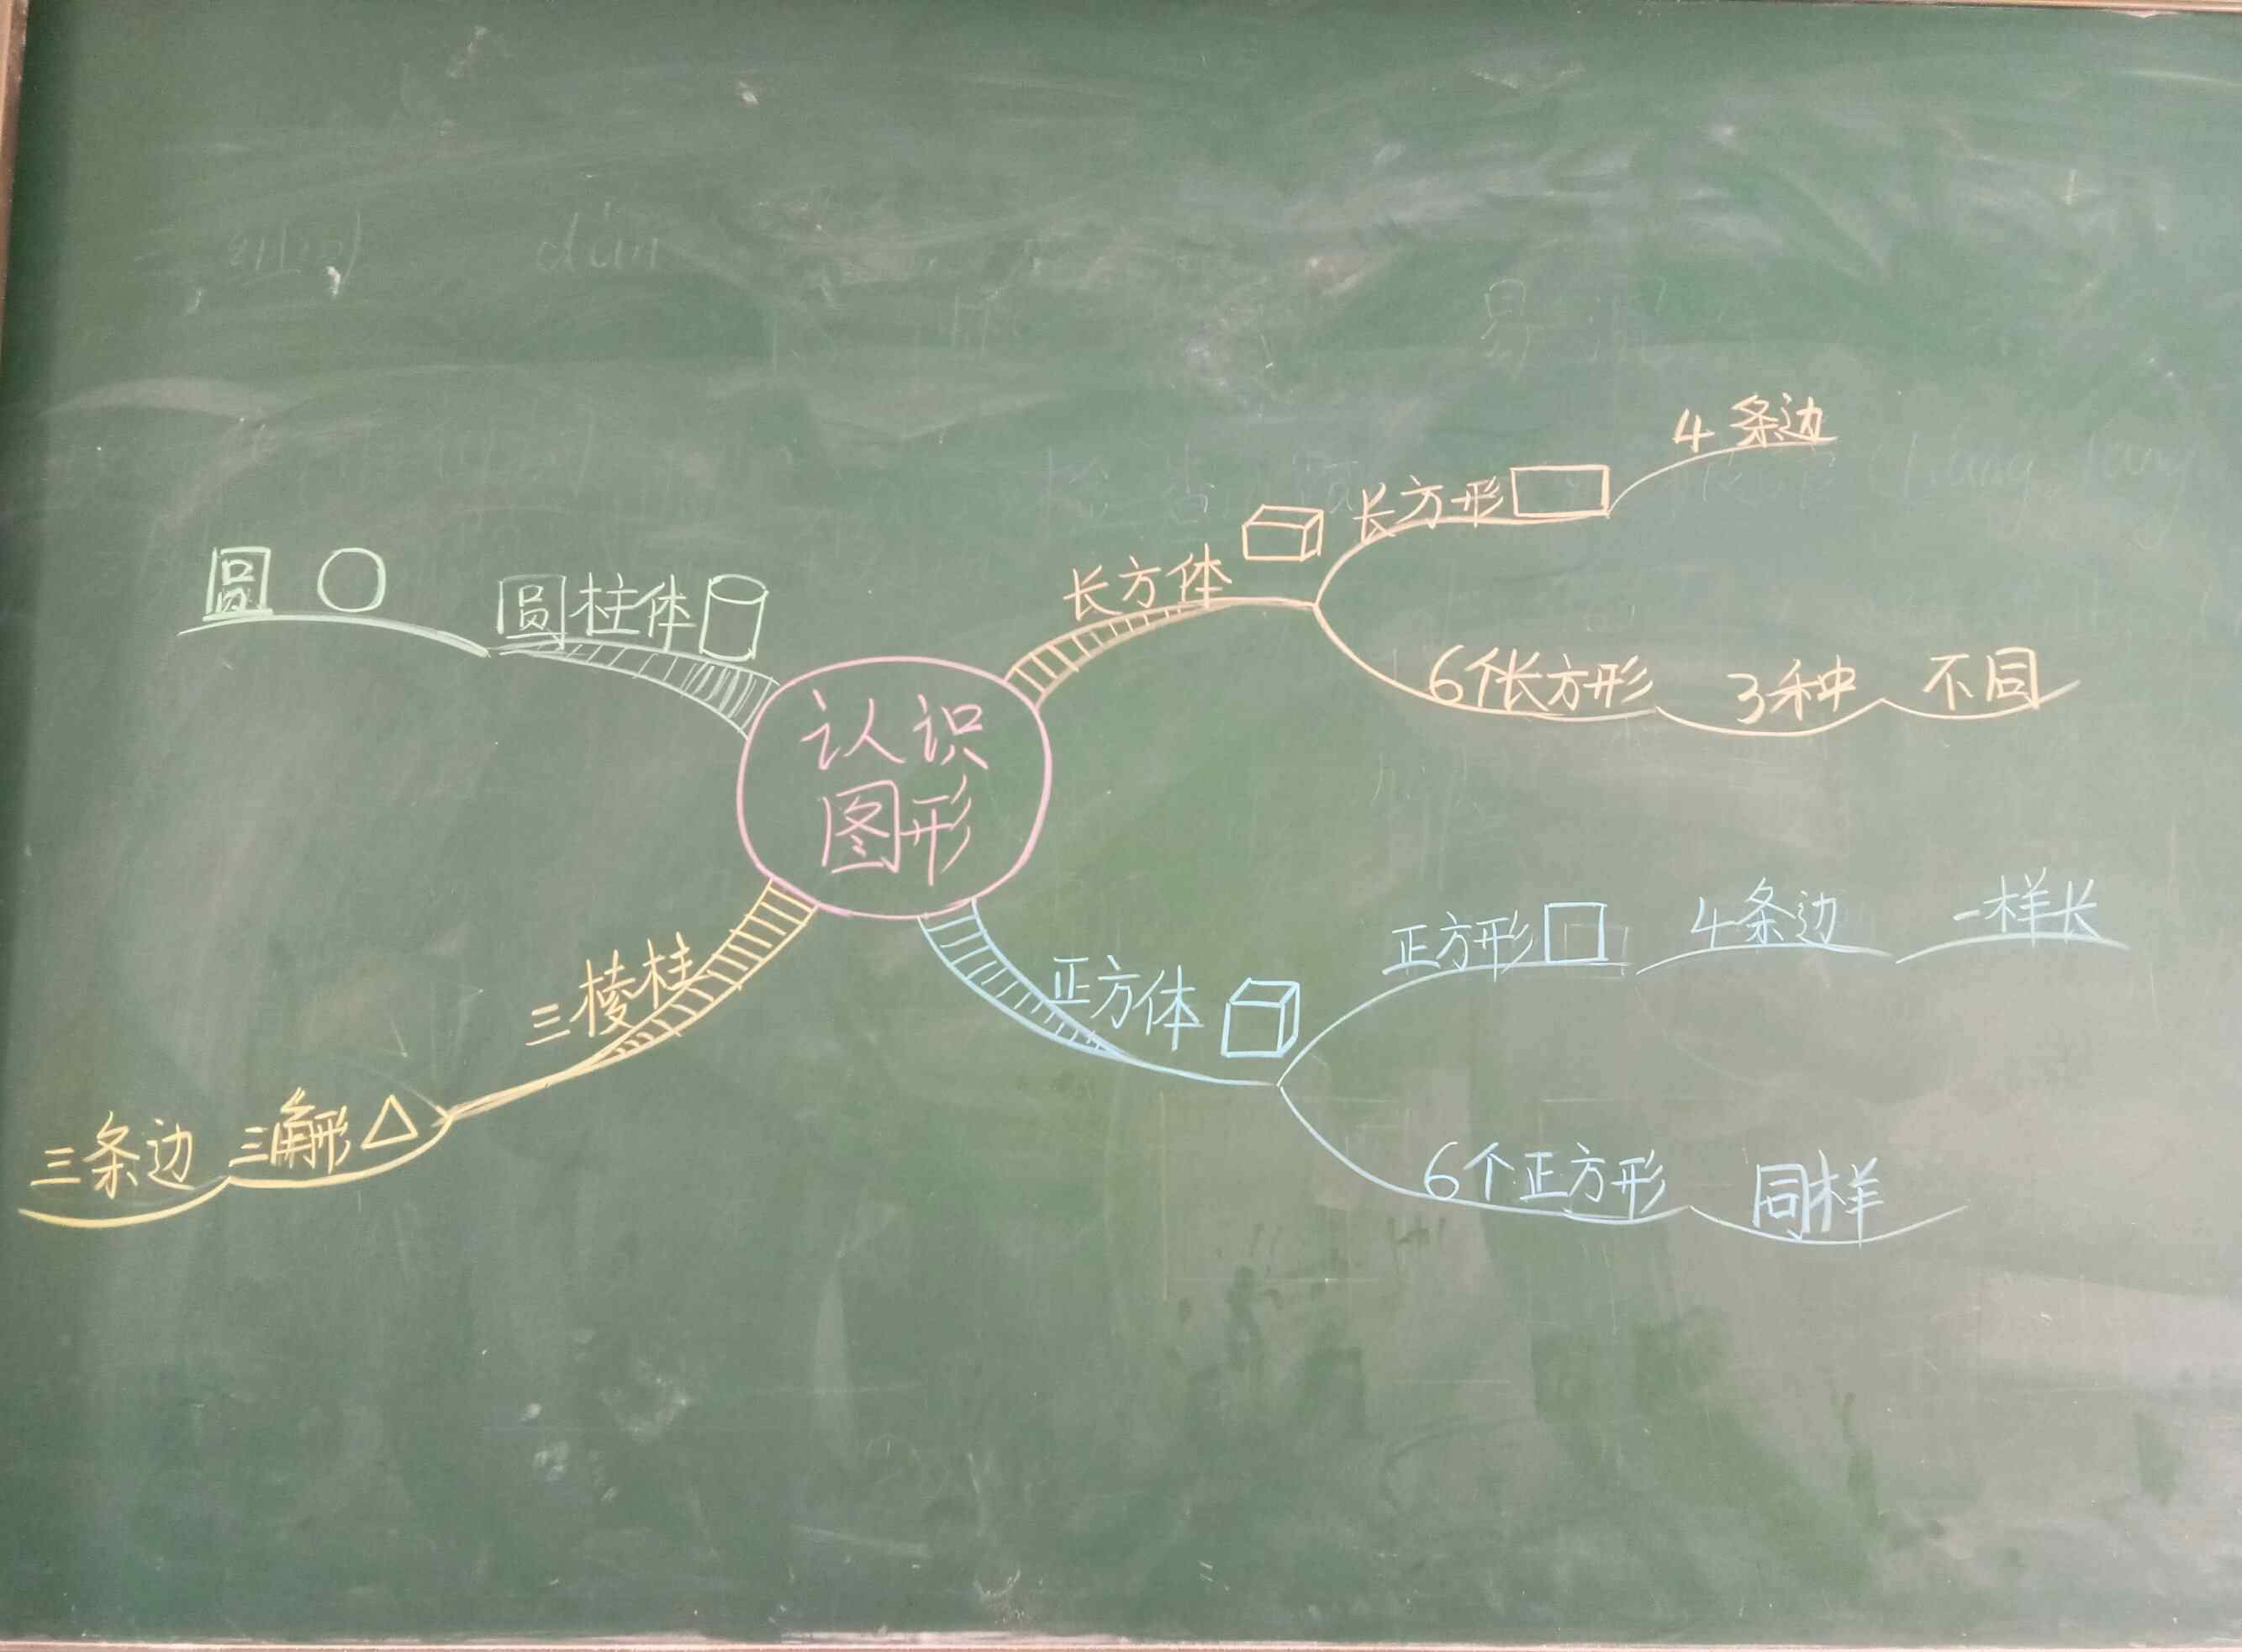 认识
图形
长方体
长方形
4条边
6个长方形 3种 不同
正方体
正方形 4条边 一样长
6个正方形 同样
三棱柱
三角形
三条边
圆柱体
圆